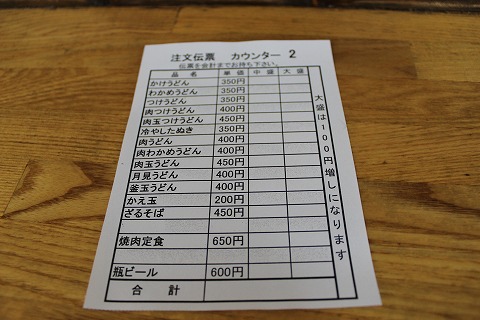 注文伝票 カウンター 2
伝票を会計までお持ち下さい。
品名 単価 中盛 大盛
かけうどん 350円
わかめうどん 350円
つけうどん 350円
肉つけうどん 400円
肉玉つけうどん 450円
冷やしたぬき 350円
肉うどん 400円
肉わかめうどん 400円
肉玉うどん 450円
月見うどん 400円
釜玉うどん 400円
かえ玉 200円
ざるそば 450円
焼肉定食 650円
瓶ビール 600円
合計
大盛は100円増しになります